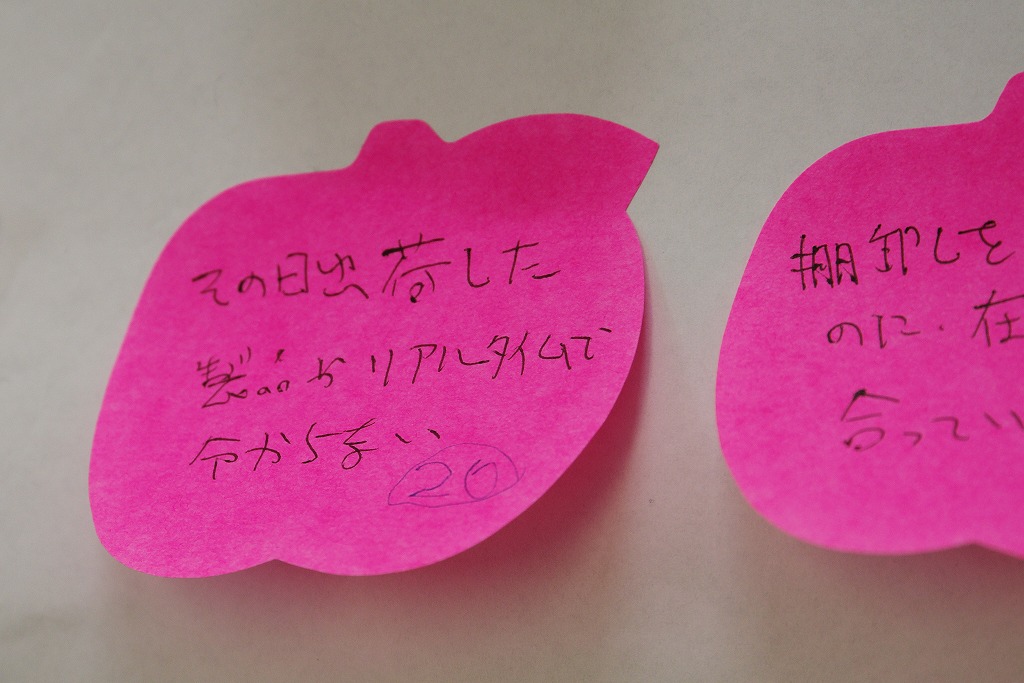 その日出荷した
製品がリアルタイムで
分からない
20
棚卸しを
のに、在
合ってい